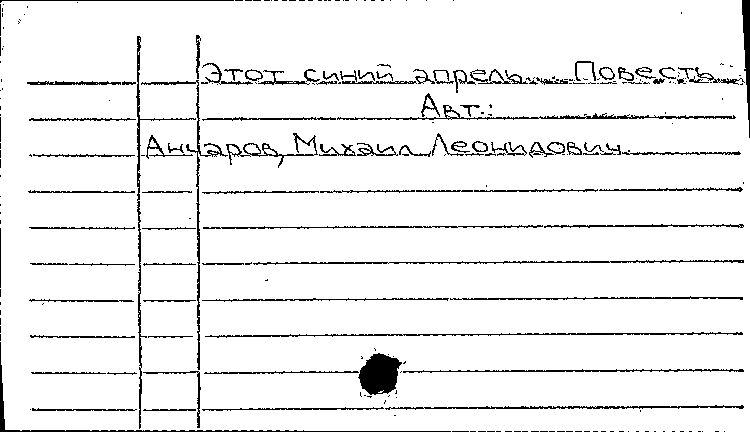 Этот синий апрель... Повесть
Авт.:
Анчаров, Михаил Леонидович.